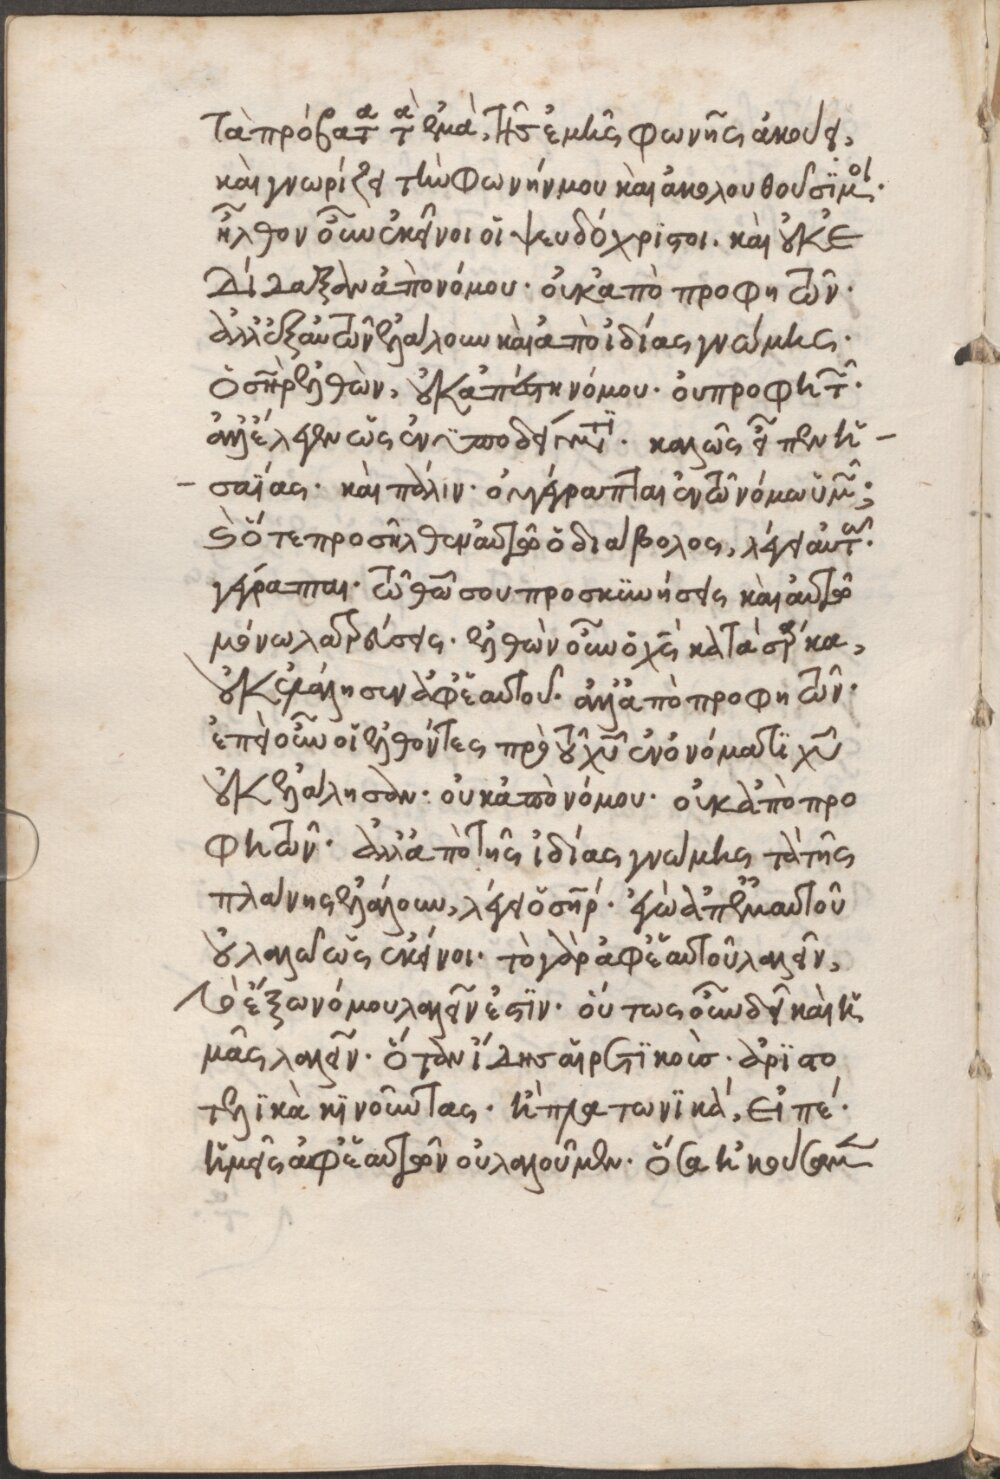 Τὰ πρόβατα τὰ ἐμὰ, τῆς ἐμῆς φωνῆς ἀκούει,
καὶ γνωρίζει τὴν φωνήν μου καὶ ἀκολουθοῦσϊ μοι.
ἦλθον οὖν ἐκεῖνοι οἱ ψευδόχριστοι. καὶ οὐκ ἐ
δίδαξαν ἀπὸ νόμου. οὐκ ἀπὸ προφητῶν.
ἀλλ' ἐξ αὐτῶν ἐλάλουν καὶ ἀπὸ ἰδίας γνώμης.
ὁ σωτὴρ ἐλθὼν, οὐκ ἀπέστη νόμου. οὐ προφητῶν.
ἀλλ' ἔλεγεν ὡς ἐν ὑποδείγματι. καλῶς εἶπεν ἡ
σαΐας. καὶ πάλιν. οὐ γέγραπται ἐν τῷ νόμω ὑμῶν;
καὶ ὅτε προσῆλθεν αὐτῷ ὁ διάβολος, λέγει αὐτῶ.
γέγραπται. τῷ θῶ σου προσκυνήσεις καὶ αὐτῷ
μόνω λατρεύσεις. ἐλθὼν οὖν ὁ χς κατὰ σάρκα,
οὐκ ἐλάλησεν ἀφ' ἑαυτοῦ. ἀλλ' ἀπὸ προφητῶν.
ἐπεὶ οὖν οἱ ἐλθόντες πρὸ τοῦ χῦ ἐν ὀνόματϊ χῦ
οὐκ ἐλάλησαν. οὐκ ἀπὸ νόμου. οὐκ ἀπὸ προ
φητῶν. ἀλλ' ἀπὸ τῆς ἰδίας γνώμης τὰ τῆς
πλάνης ἐλάλουν, λέγει ὁ σωτήρ. ἐγὼ ἀπ' ἐμαυτοῦ
οὐ λαλῶ ὡς ἐκεῖνοι. τὸ γὰρ ἀφ' ἑαυτοῦ λαλεῖν,
τὸ ἔξω νόμου λαλεῖν ἐστϊν. οὕτως οὖν δεῖ καὶ ἡ
μᾶς λαλεῖν. ὅταν ἴδης αἱρετϊκοὺς. ἀρϊστο
τελϊκὰ κϊνοῦντας. ἢ πλατωνϊκὰ, εἰπέ.
ἡμεῖς ἀφ' ἑαυτῶν οὐ λαλοῦμεν. ὅσα ἠκούσαμεν